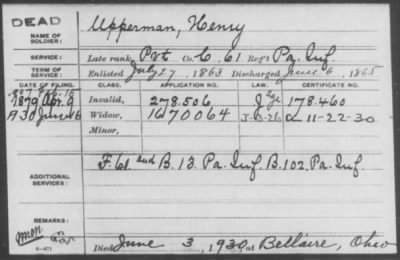 DEAD
NAME OF SOLDIER: Upperman, Henry
SERVICE: Late rank, Pvt Co. C, 61 Reg't Pa. Inf.
TERM OF SERVICE: Enlisted July 27, 1863 Discharged June 6, 1865
DATE OF FILING. CLASS. APPLICATION NO. LAW. CERTIFICATE NO.
1879 Apr. 9 Invalid, 278.506 178.460
A 30 June 16 Widow, 1670064 J-3-26 a 11-22-30
Minor,
ADDITIONAL SERVICES: F. 61 and B. 13. Pa. Inf. B. 102. Pa. Inf.
REMARKS:
Died June 3, 1930, at Bellaire, Ohio